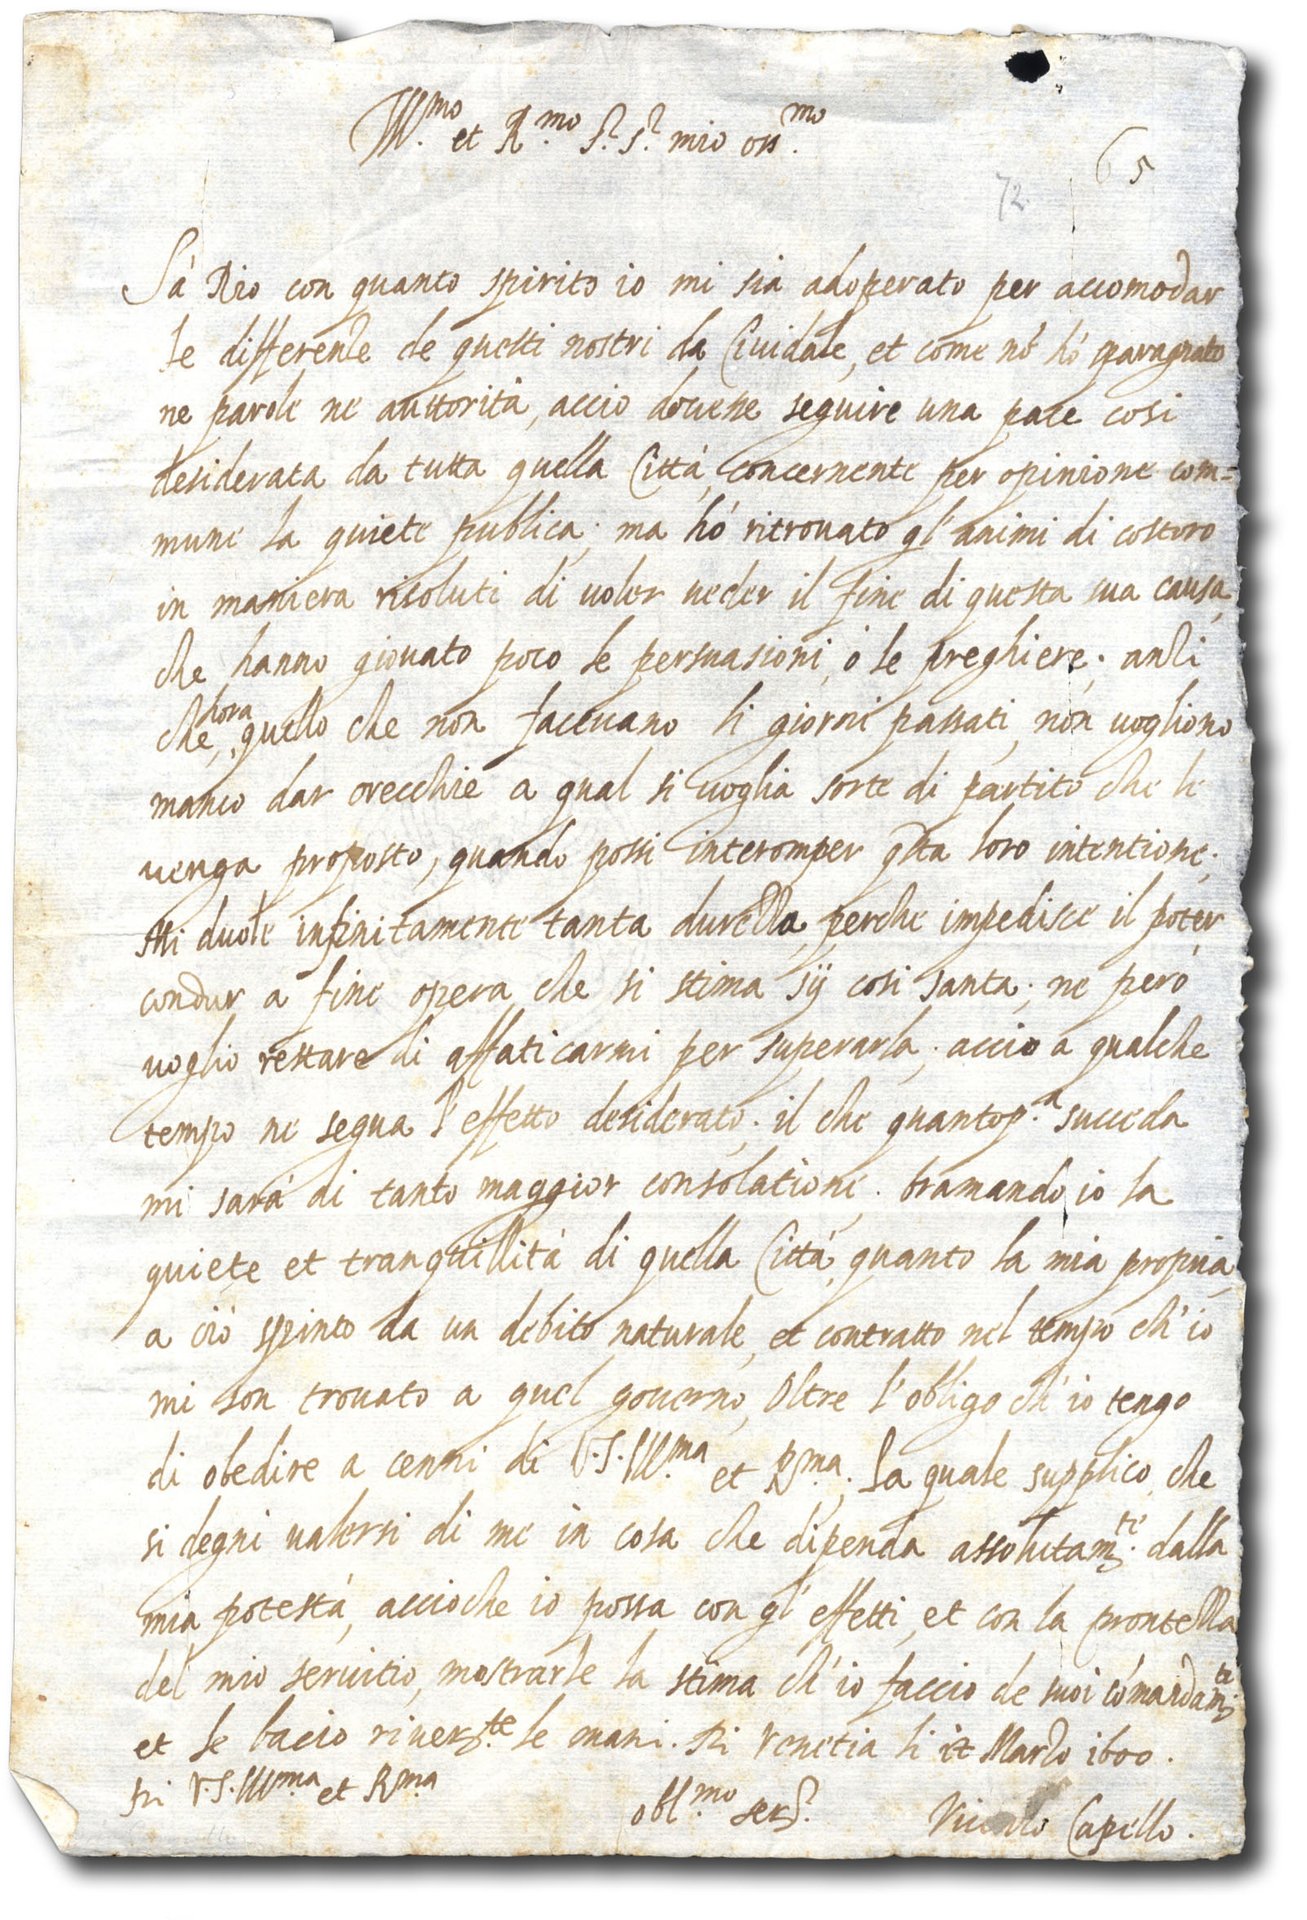 Ill.mo et R.mo S.r S.r mio oss.mo
65
72
Sà Dio con quanto spirito io mi sia adoperato per accomodar
le differenze de questi nostri da Cividale, et come nõ hò sparagnato
ne parole ne auttorità, acciò dovesse seguire una pace cosi
desiderata da tutta quella Città, concernente per opinione com=
mune la quiete publica; ma hò ritrovato gl'animi di costoro
in maniera risoluti di voler veder il fine di questa sua causa,
che hanno giovato poco le persuasioni, ò le preghiere; anzi
che hora, quello che non facevano li giorni passati, non vogliono
manco dar orecchie a qual si voglia sorte di partito che le
venga proposto, quando possi interomper q̃sta loro intentione.
Mi duole infinitamente tanta durezza, perche impedisce il poter
condur a fine opera, che si stima sij cosi santa; ne però
voglio restare di affaticarmi per superarla, acciò a qualche
tempo ne segua l'effetto desiderato; il che quanto p.a succeda
mi sarà di tanto maggior consolatione, bramando io la
quiete et tranquillità di quella Città, quanto la mia propria,
a ciò spinto da un debito naturale, et contratto nel tempo ch'io
mi son trovato a quel governo, Oltre l'obligo ch'io tengo
di obedire a cenni di V.S.Ill.ma et R.ma; la quale supplico, che
si degni valersi di me in cosa che dipenda assolutam.te dalla
mia potestà, accioche io possa con gl'effetti, et con la prontezza
del mio servitio, mostrarle la stima ch'io faccio de suoi cõmandam.ti
et le bacio river.te le mani. Di Venetia li Marzo 1600.
Di V.S.Ill.ma et R.ma
obl.mo ser.r Capello.